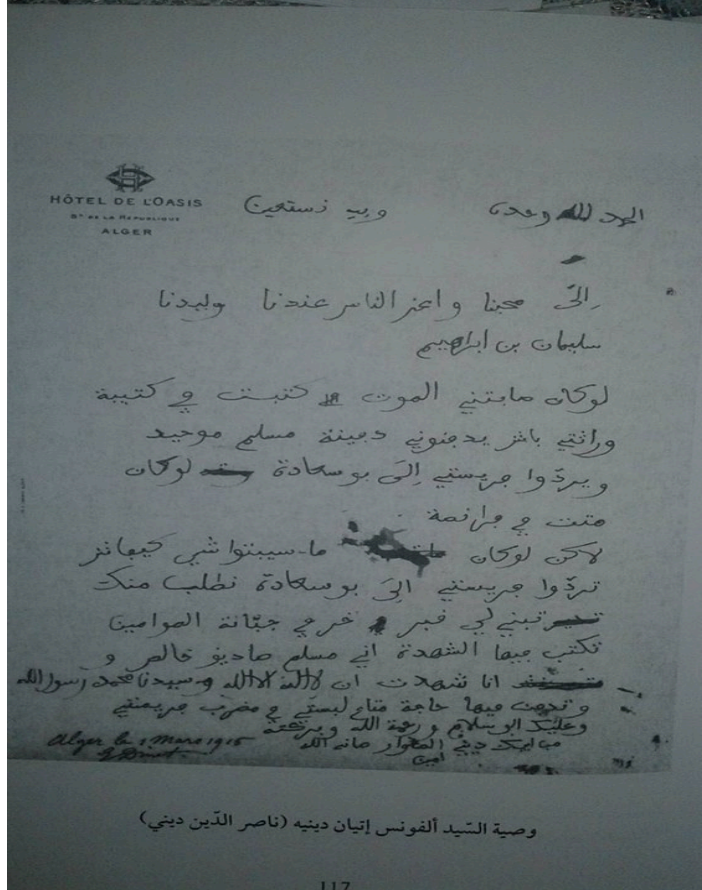 HÔTEL DE L'OASIS
Bd DE LA RÉPUBLIQUE
ALGER
الحمد لله وحده وبه نستعين
إلى محبنا واعز الناس عندنا وليدنا
سليمان بن ابراهيم
لوكان صابتني الموت كتبت في كتيبة
وراثتي باش يدفنوني دفينة مسلم موحيد
ويردّوا جريستي إلى بوسعادة لوكان
متت في فرانصة
لاكن لوكان ما سيبتوا شي كيفاش
تردّوا جريستي الى بوسعادة نطلب منك
تبني لي فبر خر في جبّانة الموامين
تكتب فيها الشهدة اني مسلم صاديق خالص و
انا شهدت ان لااله الاالله وسيدنا محمد رسول الله
و فيها حاجة متاع لبستي في مضرب جريستي
وعليك ابوسلام ورحمة الله وبركته
ديني صانه الله
امين
Alger le 1 Mars 1915
E Dinet
وصية السّيد ألفونس إتيان دينيه (ناصر الدّين ديني)
117